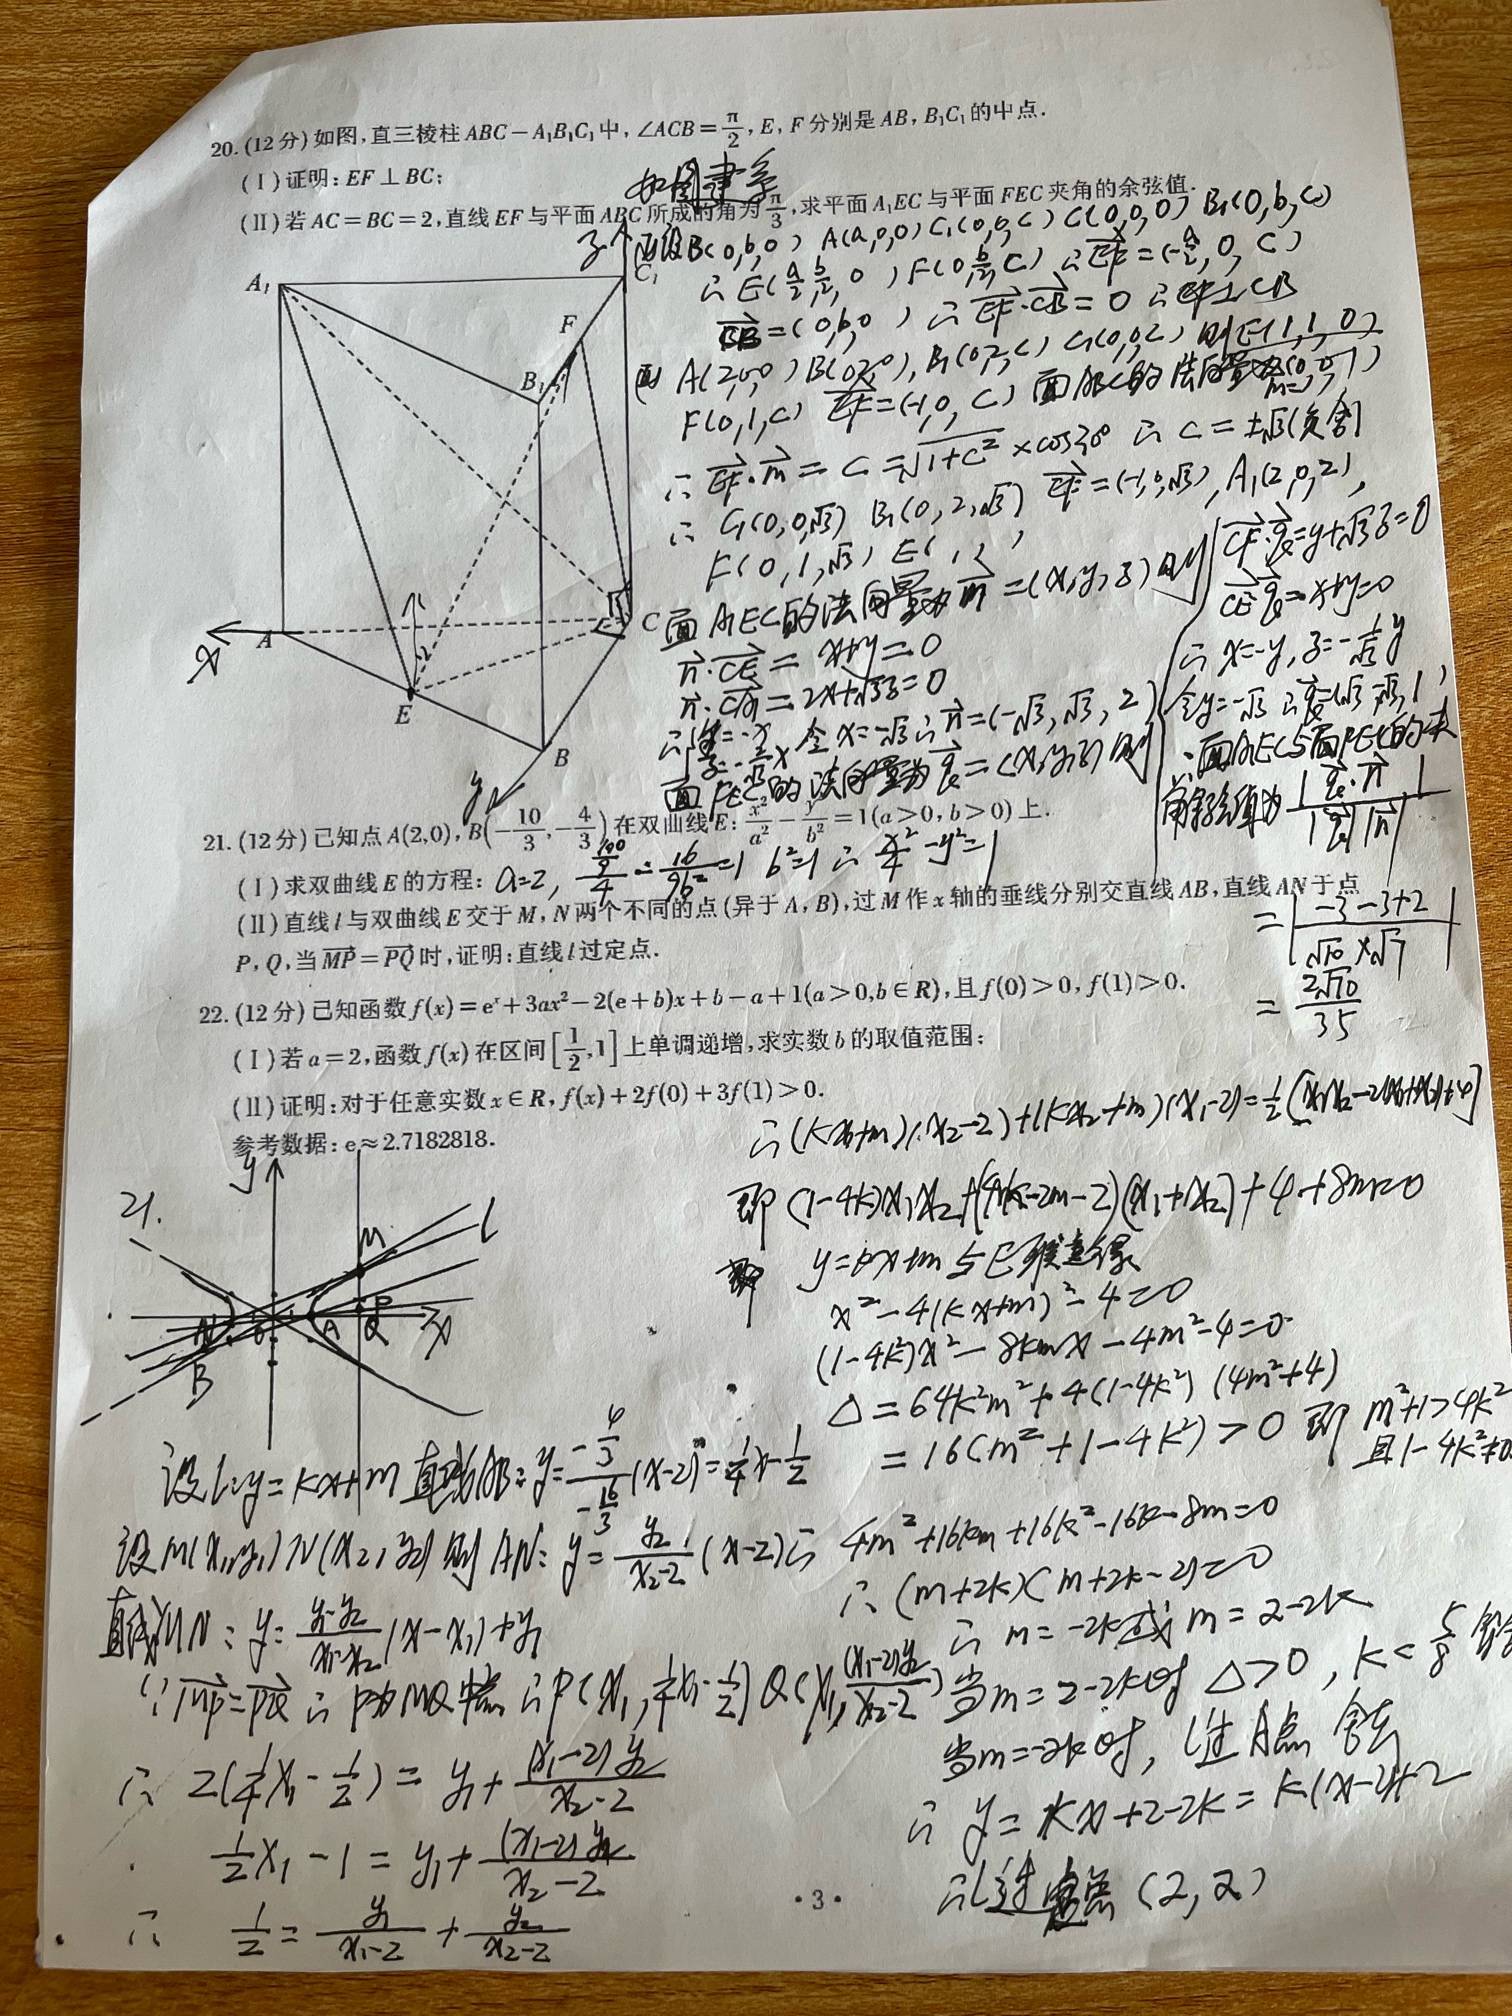 20. (12分) 如图,直三棱柱ABC-A₁B₁C₁中,∠ACB=π/2,E,F分别是AB,B₁C₁的中点.
(Ⅰ)证明:EF⊥BC;
如图建系
(Ⅱ)若AC=BC=2,直线EF与平面ABC所成的角为π/3,求平面A₁EC与平面FEC夹角的余弦值.
设B(0,b,0) A(a,0,0) C₁(0,0,c) C(0,0,0) B₁(0,b,c)
∴E(a/2,b/2,0) F(0,b/2,c) ∴EF=(-a/2,0,c)
CB=(0,b,0) ∴EF·CB=0 ∴EF⊥CB
A(2,0,0) B(0,2,0), B₁(0,2,c) C₁(0,0,c) 则E(1,1,0)
F(0,1,c) EF=(-1,0,c) 面ABC的法向量为m=(0,0,1)
∴EF·m=c=√(1+c²)×cos30° ∴c=±√3(负舍)
∴C₁(0,0,√3) B₁(0,2,√3) EF=(-1,0,√3), A₁(2,0,2),
F(0,1,√3) E(1,1,
面A₁EC的法向量为n=(x,y,z)则
n·CE=x+y=0
n·CA₁=2x+√3z=0
∴y=-x
z=-2/√3x 令x=-√3 ∴n=(-√3,√3,2)
面FEC的法向量为q=(x,y,z)则
CF·q=y+√3z=0
CE·q=x+y=0
∴x=-y,z=-1/√3y
令y=-√3 ∴q=(√3,-√3,1)
∴面A₁EC与面FEC的夹
角余弦值为|q·n|/|q||n|
=|-3-3+2|/√10×√7
=2√70/35
A₁
C₁
F
B₁
A
C
E
B
x
y
z
21. (12分) 已知点A(2,0),B(-10/3,-4/3)在双曲线E:x²/a²-y²/b²=1(a>0,b>0)上.
(Ⅰ)求双曲线E的方程; a=2, 100/9/4-16/9b²=1 b²=1 ∴x²/4-y²=1
(Ⅱ)直线l与双曲线E交于M,N两个不同的点(异于A,B),过M作x轴的垂线分别交直线AB,直线AN于点
P,Q,当MP=PQ时,证明:直线l过定点.
22. (12分) 已知函数f(x)=eˣ+3ax²-2(e+b)x+b-a+1(a>0,b∈R),且f(0)>0,f(1)>0.
(Ⅰ)若a=2,函数f(x)在区间[1/2,1]上单调递增,求实数b的取值范围;
(Ⅱ)证明:对于任意实数x∈R,f(x)+2f(0)+3f(1)>0.
参考数据:e≈2.7182818.
21.
y
M
l
N
O
A
P
Q
x
B
设l:y=kx+m 直线AB:y=-4/3/-16/3(x-2)=1/4x-1/2
设M(x₁,y₁) N(x₂,y₂) 则AN:y=y₂/x₂-2(x-2)
直线MN:y=y₁-y₂/x₁-x₂(x-x₁)+y₁
∵MP=PQ ∴P为MQ中点 ∴P(x₁,1/4x₁-1/2) Q(x₁,(x₁-2)y₂/x₂-2)
∴2(1/4x₁-1/2)=y₁+(x₁-2)y₂/x₂-2
1/2x₁-1=y₁+(x₁-2)y₂/x₂-2
∴1/2=y₁/x₁-2+y₂/x₂-2
∴(kx₁+m)(x₂-2)+(kx₂+m)(x₁-2)=1/2[x₁x₂-2(x₁+x₂)+4]
即(1-4k)x₁x₂+(4k-2m-2)(x₁+x₂)+4+8m=0
y=kx+m与E联立得
x²-4(kx+m)²-4=0
(1-4k²)x²-8kmx-4m²-4=0
Δ=64k²m²+4(1-4k²)(4m²+4)
=16(m²+1-4k²)>0 即m²+1>4k²
且1-4k²≠0
∴4m²+16km+16k²-16k-8m=0
∴(m+2k)(m+2k-2)=0
∴m=-2k或m=2-2k
当m=2-2k时Δ>0,k<5/8
当m=-2k时,l过A点 舍去
∴y=kx+2-2k=k(x-2)+2
∴l过定点(2,2)
·3·